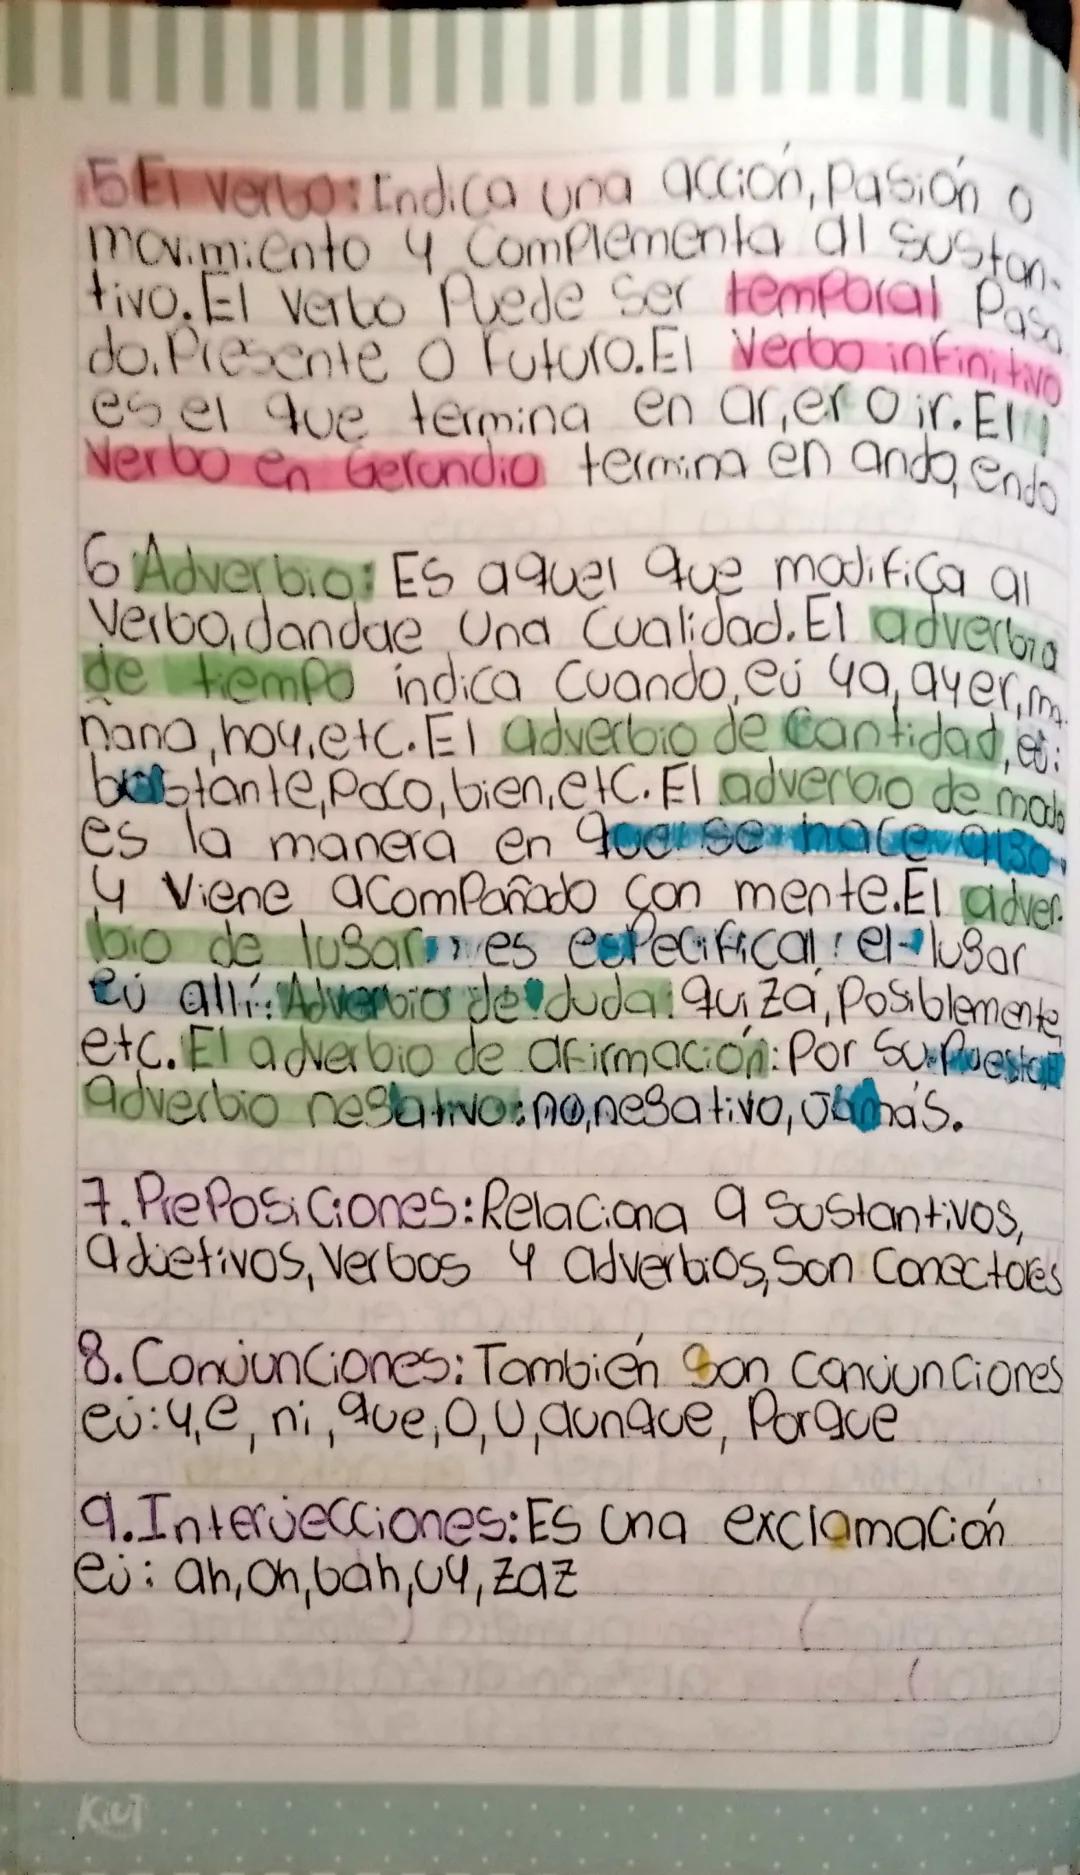 5 El verbo: Indica una acción, Pasión o
movimiento y Complementa al sustan-
tivo. El verbo Puede ser temporal Pasa
do, Presente o Futuro. El Verbo infinitivo
es el que termina en ar, er o ir. El
Verbo en Gerundio termina en ando, endo
6 Adverbio: Es aquel que modifica al
Verbo, dandae una Cualidad. El adverbio
de tiempo indica Cuando, ej ya, ayer, ma
ñana, hoy, etc. El adverbio de Cantidad, ej:
bastante, Poco, bien, etc. El adverbio de modo
es la manera en que se hace algo,
y viene acompañado con mente. El adver-
bio de lugar es especifical el lugar
ej allí. Adverbio de duda: quizá, Posiblemente
etc. El adverbio de afirmación: Por su Puesto
adverbio negativo: no, negativo, jamás.
7. PrePosiciones: Relaciona a sustantivos,
adjetivos, Verbos y adverbios, Son Conectores
8. Conjunciones: También Son Conjunciones
ej: y, e, ni, que, o, u, aunque, Porque
9. Interjecciones: Es una exclamación
ej: ah, oh, bah, uy, zaz
Kiut